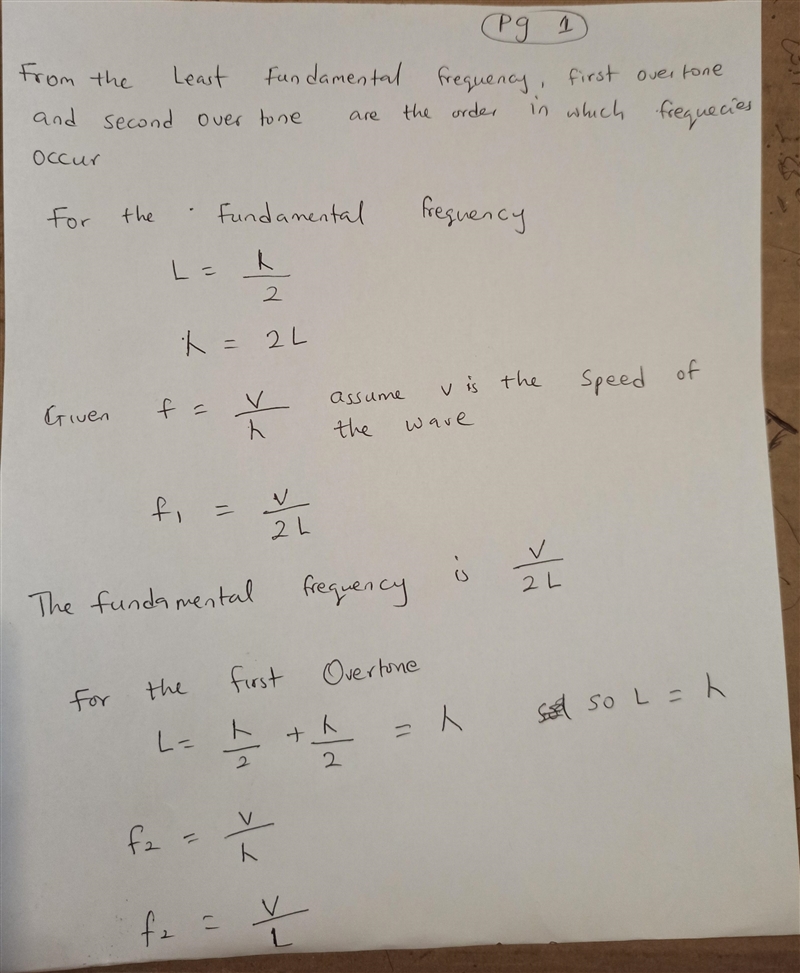 Pg 1
From the Least Fundamental frequency, first overtone
and second over tone are the order in which frequecies
occur
For the Fundamental frequency
L = λ/2
λ = 2L
Given f = V/λ assume v is the speed of
the wave
f₁ = V/2L
The fundamental frequency is V/2L
For the first Overtone
L = λ/2 + λ/2 = λ so L = λ
f₂ = V/λ
f₂ = V/L